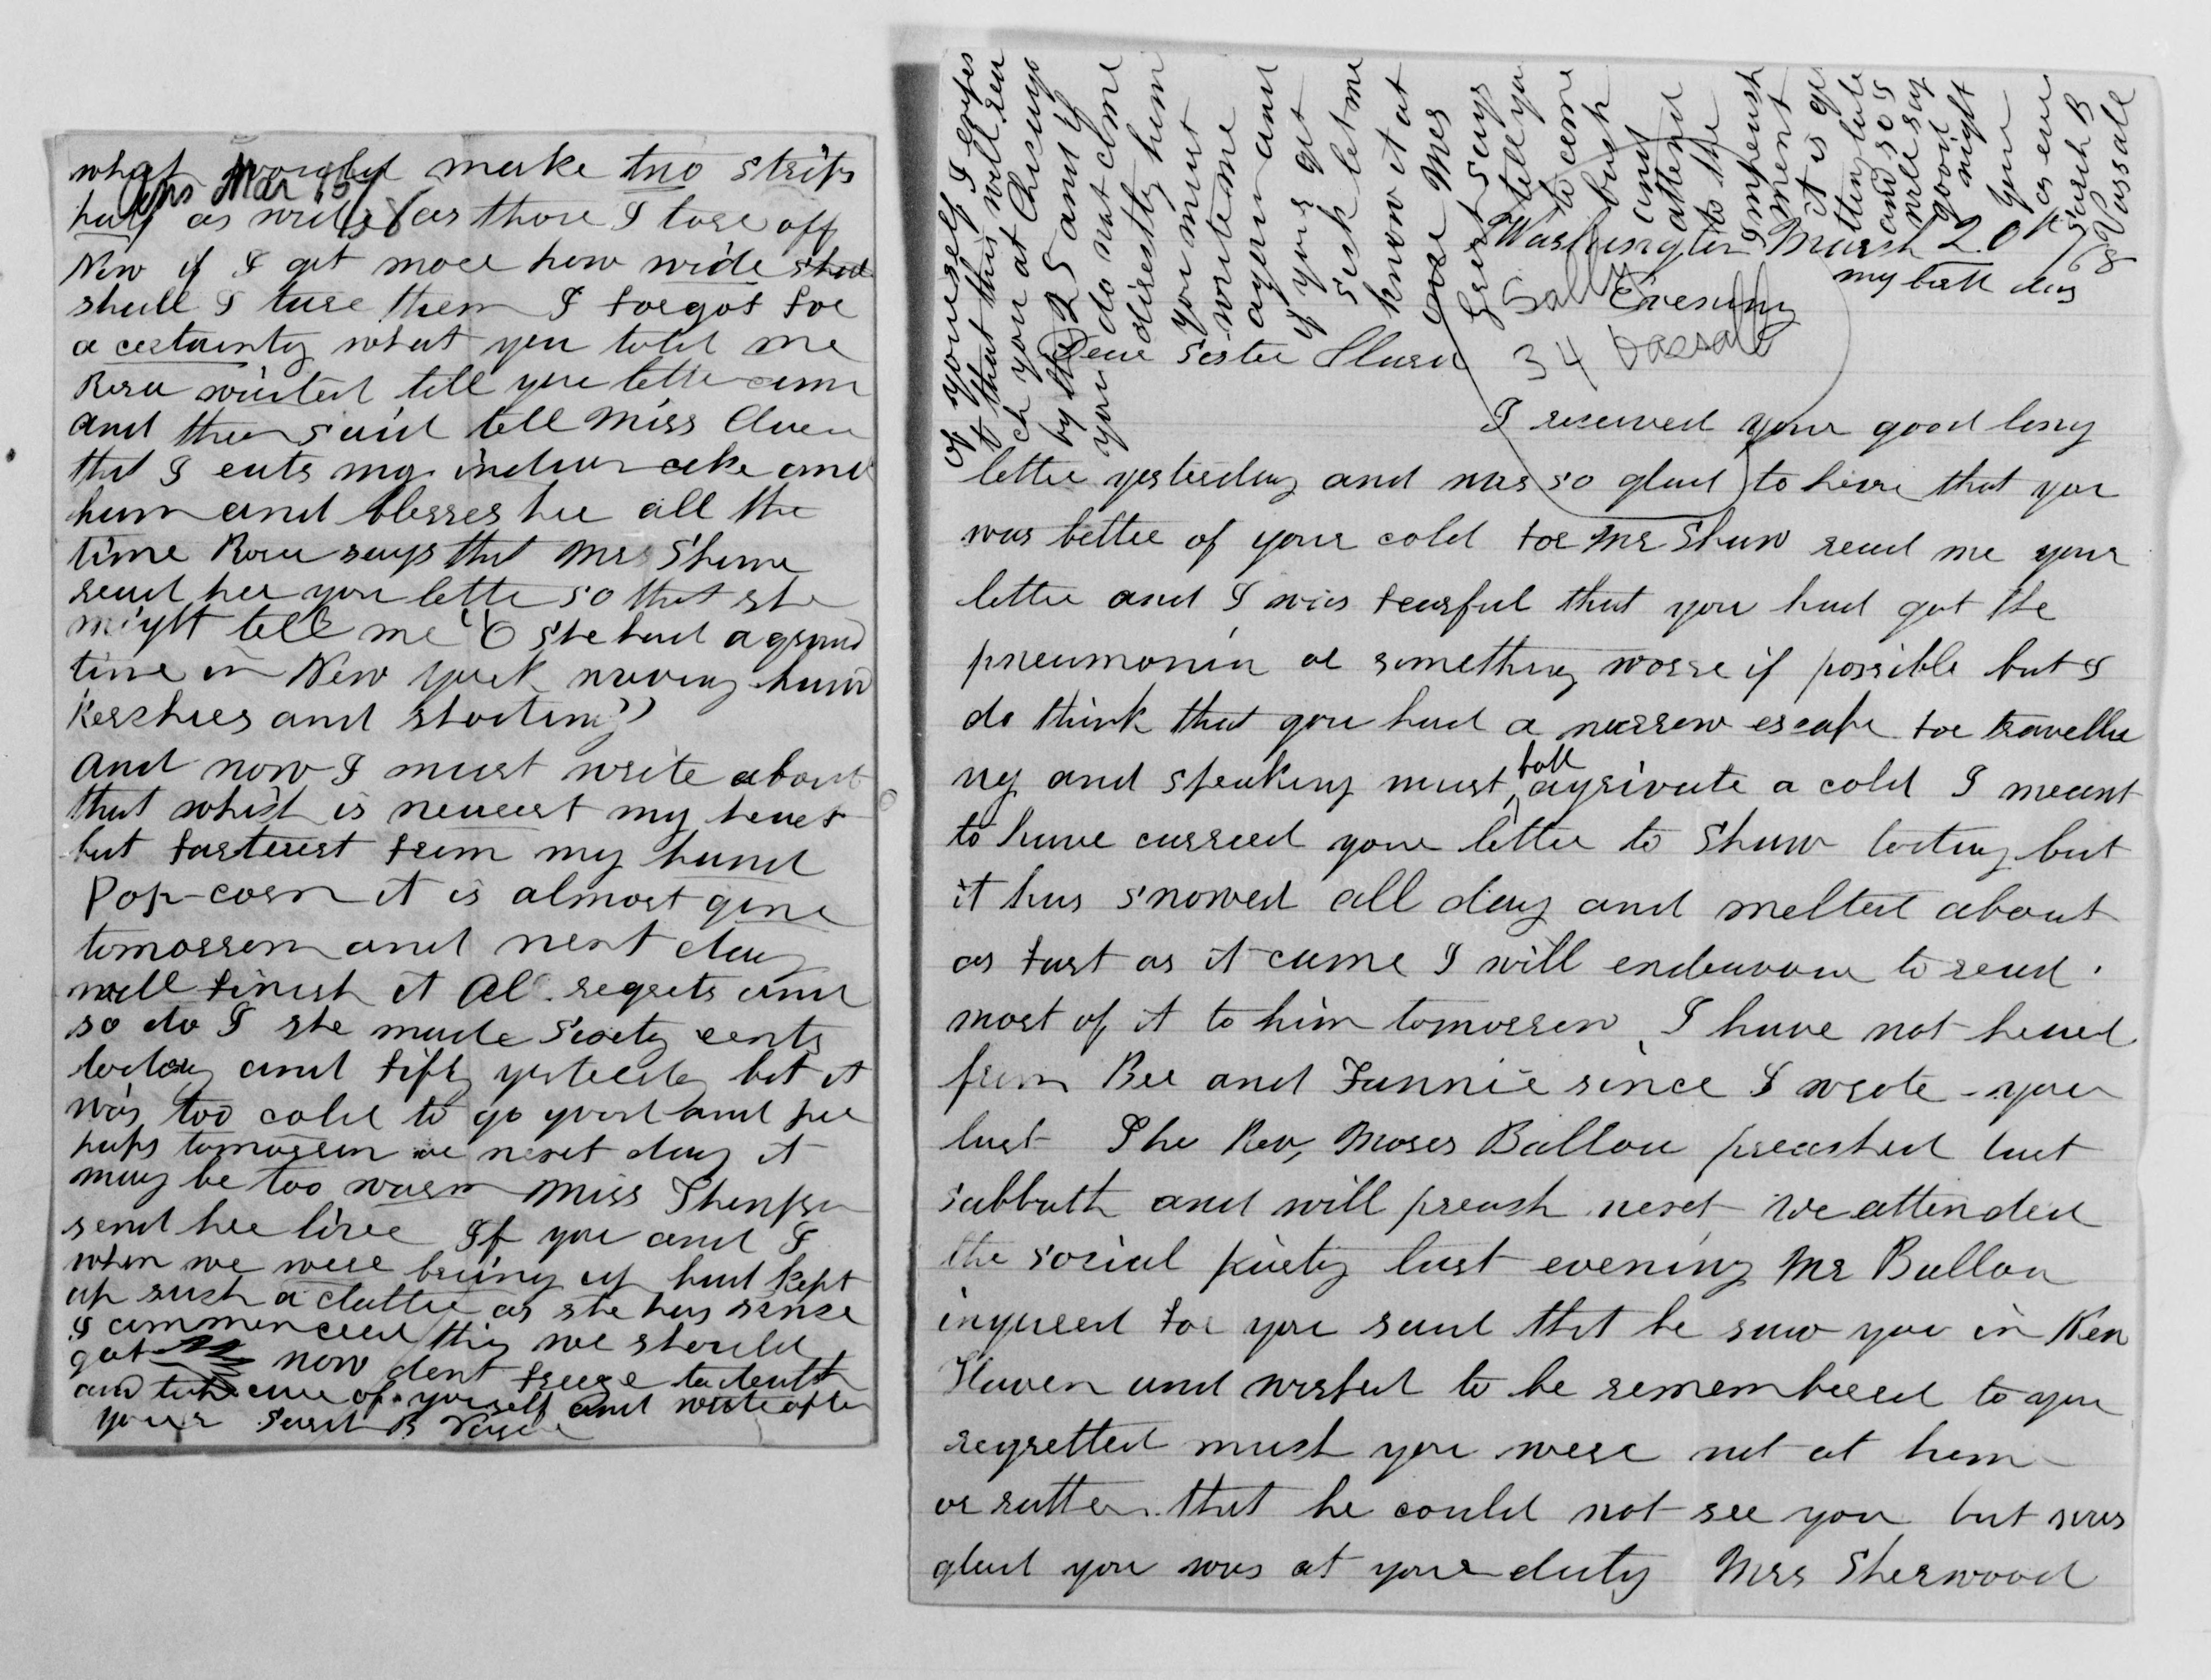 what would make two strips
Ans Mar 15/
half as wide as those I tore off
Now if I get more how wide
shall I tare them I forgot for
a certainty what you told me
Rosa waited till you letter came
and then said tell Miss Clara
that I eats my indian cake and
ham and blesses her all the
time Rosa says that Mrs Shaw
read her your letter so that she
might tell me "O she had a grand
time in New York waving hand
kerchies and shouting"
and now I must write about
that which is nearest my heart
but fartherest from my hand
Pop-corn it is almost gone
tomorrow and next day
will finish it Al. regrets and
so do I she made sixty cents
today and fifty yesterday but it
was too cold to go good and per
haps tomorrow or next day it
may be too warm Miss Thompson
send her love If you and I
when we were bring up had kept
up such a clatter as she has since
I commenced this we should
got now dont freeze to death
and take care of yourself and write often
yours Sarah B Vassall
Washington March 20th /68
my birth day
Sally Evening
34 Vassall
Dear Sister Clara
I received your good long
letter yesterday and was so glad to hear that you
was better of your cold for Mr Shaw read me your
letter and I was fearful that you had got the
pneumonia or something worse if possible but I
do think that you had a narrow escape for travelli
ng and speaking must both agrivate a cold I meant
to have carried your letter to Shaw today but
it has snowed all day and melted about
as fast as it came I will endeavour to read
most of it to him tomorrow. I have not heard
from Bee and Fannie since I wrote you
last The Rev, Moses Ballou preached last
sabbath and will preach next We attended
the social party last evening Mr Ballou
inquired for you said that he saw you in New
Haven and wished to be remembered to you
regretted much you were not at home
or rather that he could not see you but was
glad you was at your duty Mrs Sherwood
of yourself I expect
that this will rea
ch you at Chicago
by the 25 and if
you do not come
directly him
you must
write me
again and
if you get
sick let me
know it at
once Mrs
Grist says
tell you
to come
back
and
attend
to the
Impeach
ment
it is ge
tting late
and so I
will say
good
night
your
as ever
Sarah B
Vassall